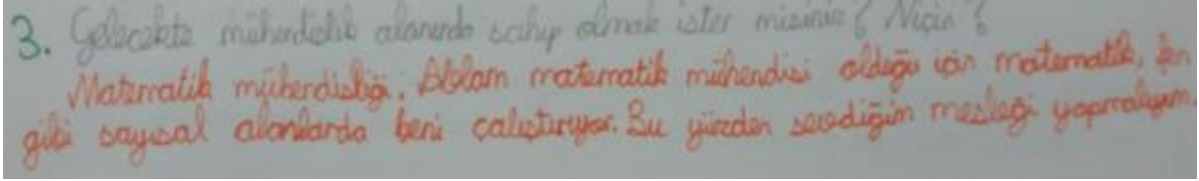 3. Gelecekte mühendislik alanında sahip olmak ister misiniz? Niçin?
Matematik mühendisliği. Ablam matematik mühendisi olduğu için matematik, fen
gibi sayısal alanlarda beni çalıştırıyor. Bu yüzden sevdiğim mesleği yapmalıyım.